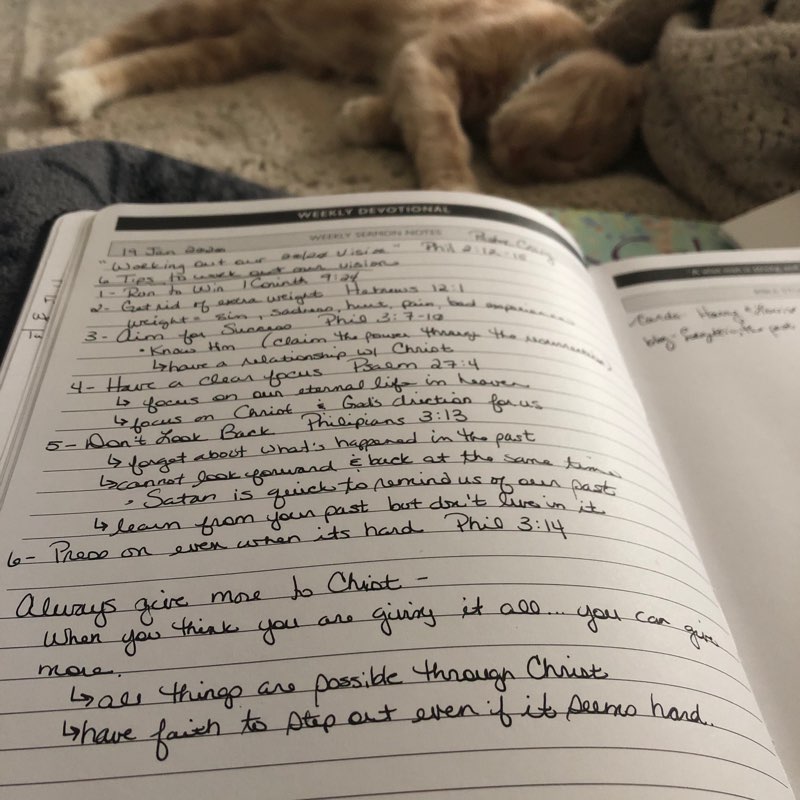 WEEKLY DEVOTIONAL
WEEKLY SERMON NOTES
19 Jan 2020 Pastor Craig
"Working out our 20/20 Vision" Phil 2:12-18
6 Tips to work out our vision
1- Run to Win 1 Corinth 9:24
2- Get rid of extra weight Hebrews 12:1
weight = sin, sadness, hurt, pain, bad experiences
3- Aim for Success Phil 3:7-10
• Know Him (claim the power through the resurrection)
↳ have a relationship w/ Christ
4- Have a clear focus Psalm 27:4
↳ focus on our eternal life in heaven
↳ focus on Christ & God's direction for us
5- Don't Look Back Philipians 3:13
↳ forget about what's happened in the past
↳ cannot look forward & back at the same time
• Satan is quick to remind us of our past
↳ learn from your past but don't live in it
6- Press on even when its hard Phil 3:14
Always give more to Christ -
When you think you are giving it all... you can give
more.
↳ all things are possible through Christ
↳ have faith to step out even if it seems hard.
Cards